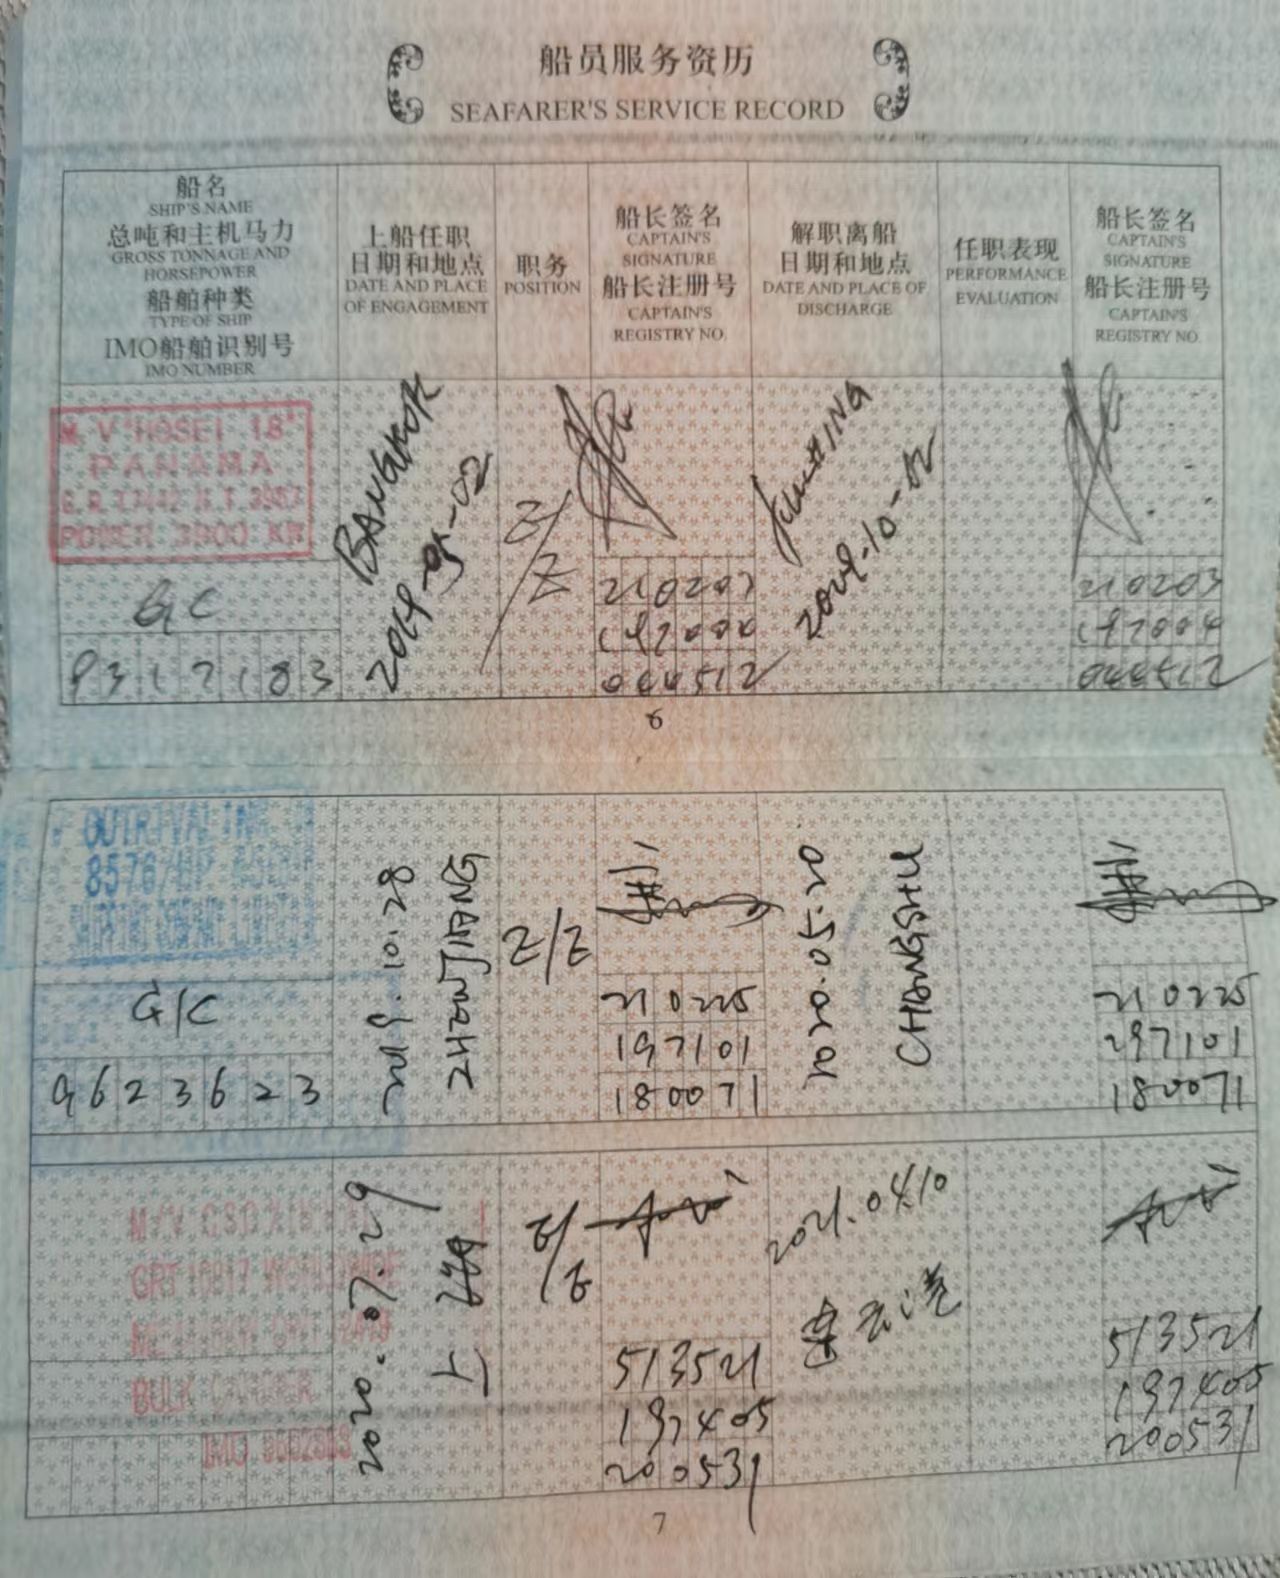 船员服务资历
SEAFARER'S SERVICE RECORD
船名
SHIP'S NAME
总吨和主机马力
GROSS TONNAGE AND
HORSEPOWER
船舶种类
TYPE OF SHIP
IMO船舶识别号
IMO NUMBER
上船任职
日期和地点
DATE AND PLACE
OF ENGAGEMENT
职务
POSITION
船长签名
CAPTAIN'S
SIGNATURE
船长注册号
CAPTAIN'S
REGISTRY NO.
解职离船
日期和地点
DATE AND PLACE OF
DISCHARGE
任职表现
PERFORMANCE
EVALUATION
船长签名
CAPTAIN'S
SIGNATURE
船长注册号
CAPTAIN'S
REGISTRY NO.
M.V"HOSEI 18"
PANAMA
POWER 3900 KW
GC
9317183
BANGKOK
2/E
044512
210203
197004
044512
6
8576/HP
G/C
9623623
2019.10.28
ZHENJIANG
2/E
210225
197101
180071
2020.05.20
CHANGSHU
210225
197101
180071
M/V
BULK
IMO
2020.07.29
上海
2/E
513521
197405
200531
2021.04.10
连云港
513521
197405
200531
7